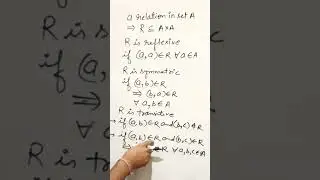 a relation in set A
⇒ R ⊆ A×A
R is reflexive
if (a,a)∈R ∀ a∈A
R is symmetric
if (a,b)∈R
⇒ (b,a)∈R
∀ a,b∈A
R is transitive
→ if (a,b)∈R and (b,c)∉R
→ if (a,b)∈R and (b,c)∈R
R ∀ a,b,c∈A